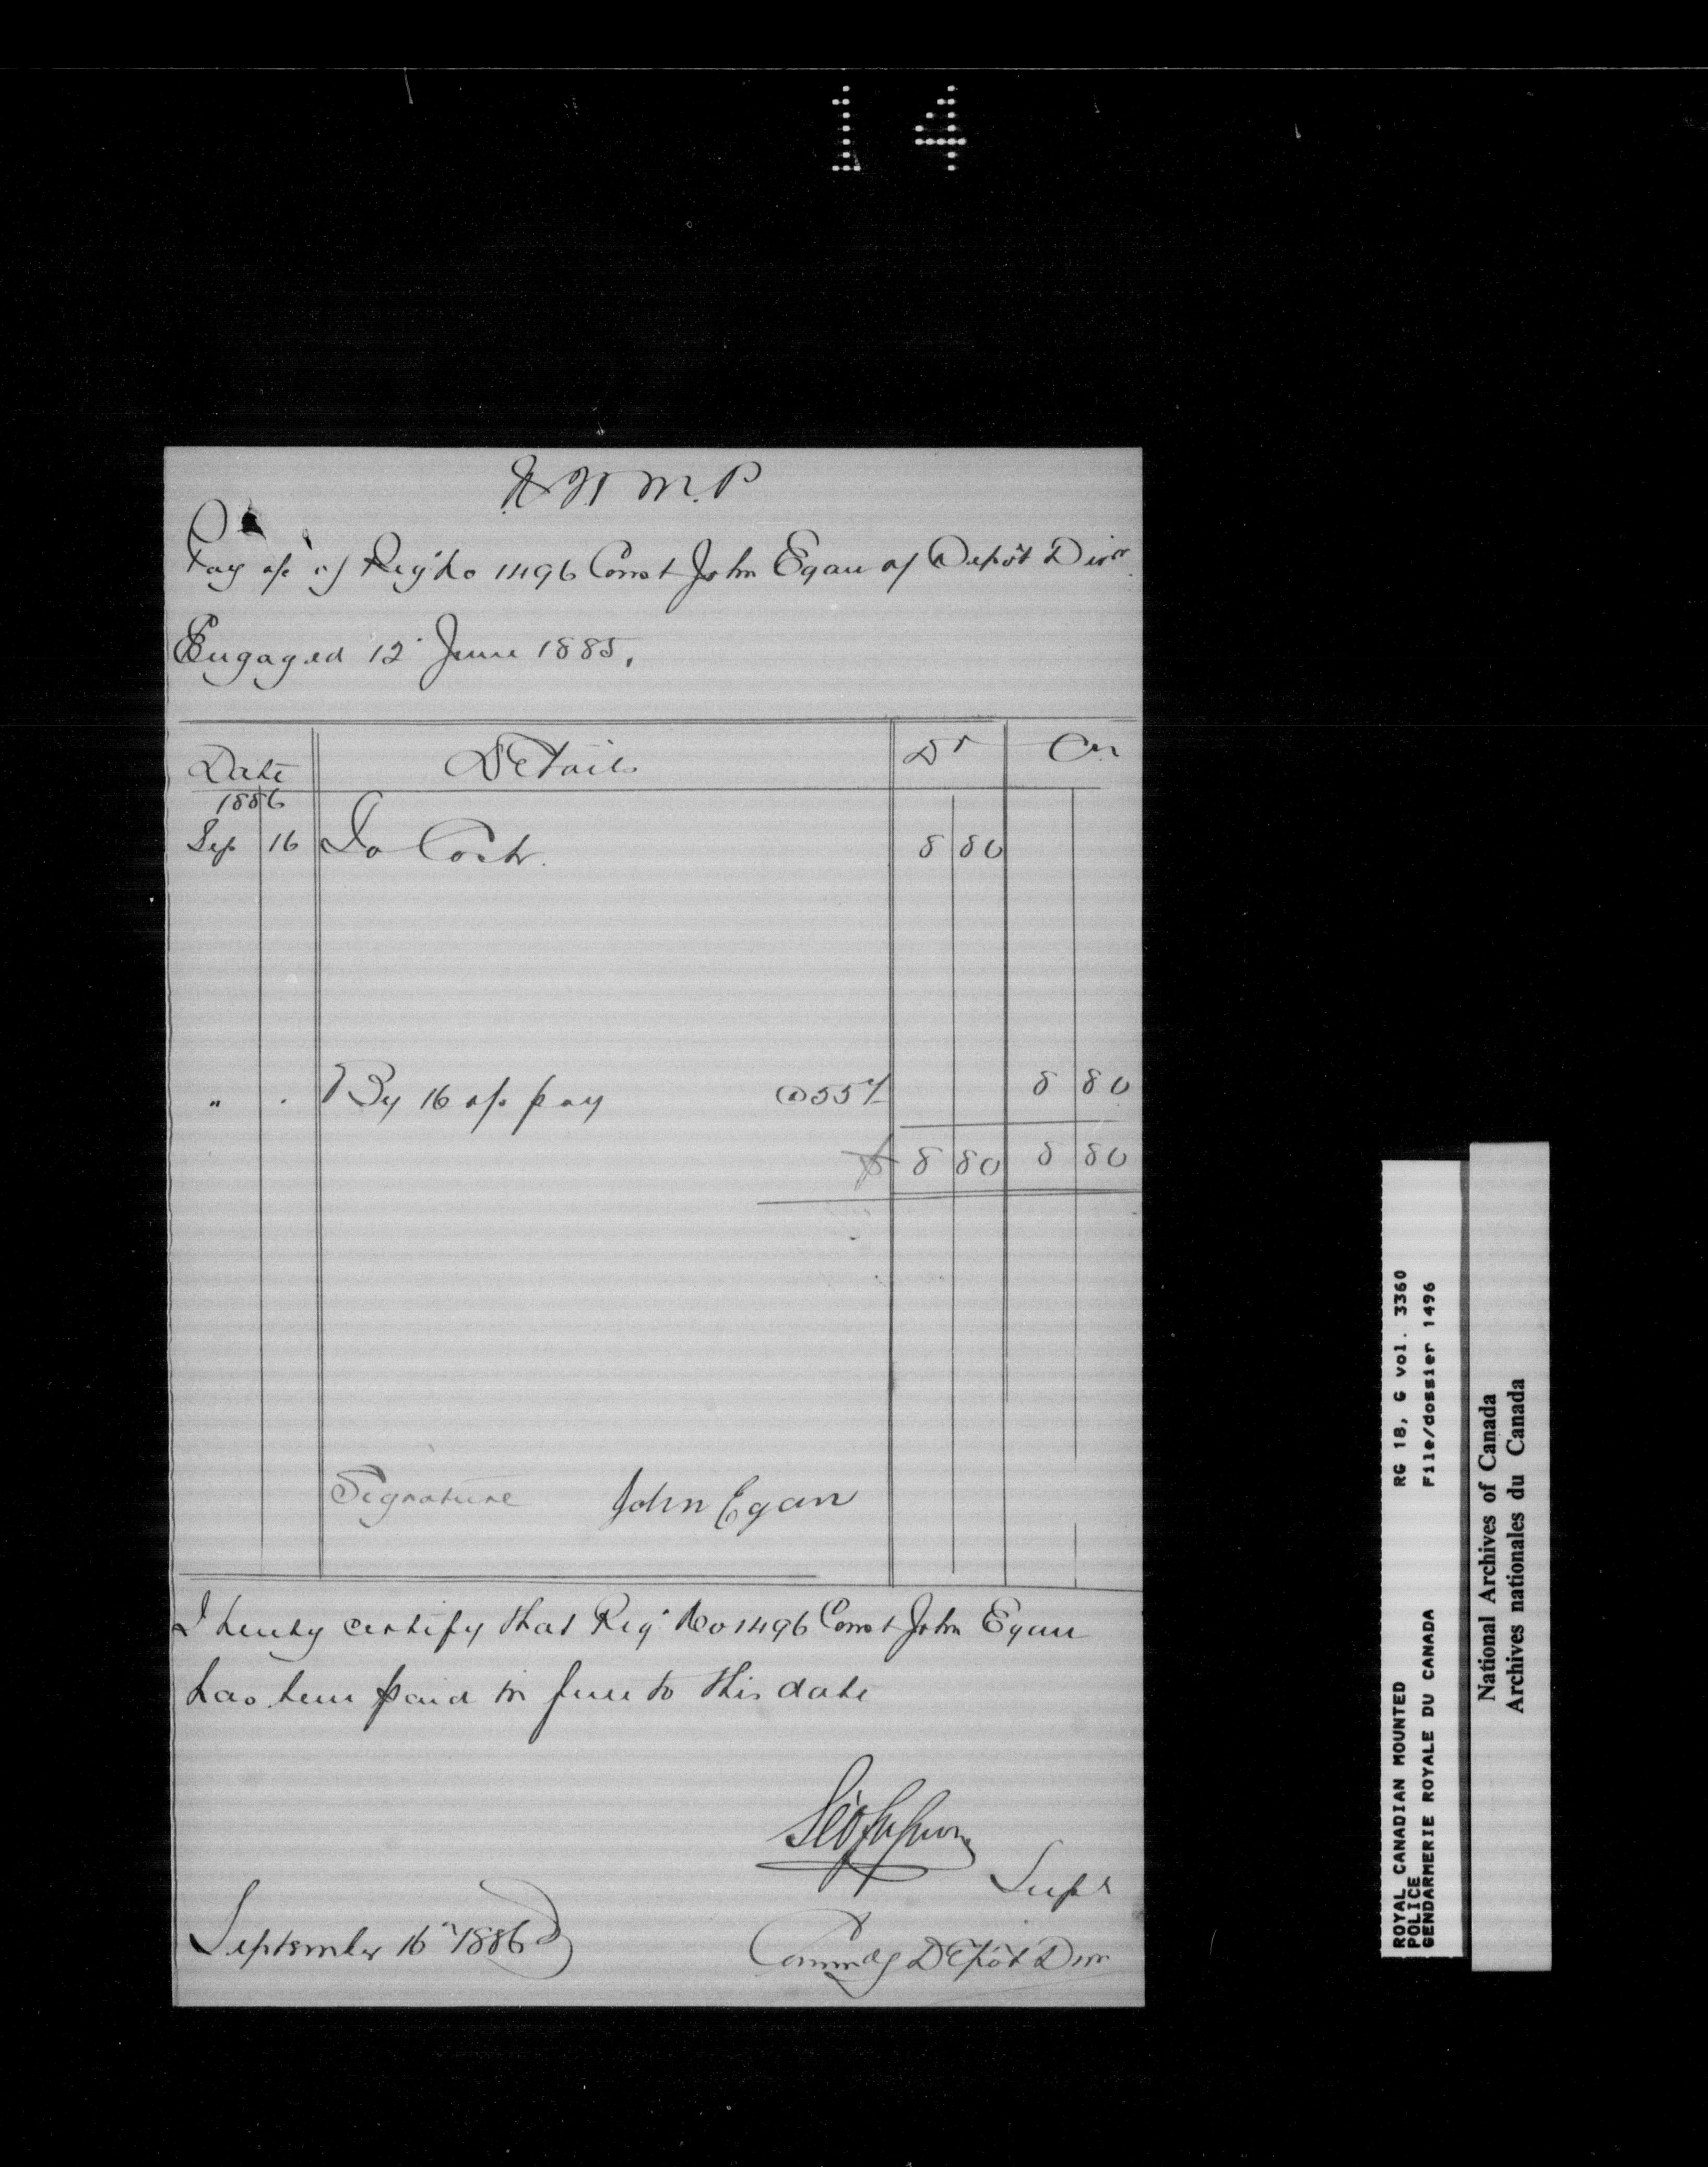 14
N.W.M.P
Pay a/c of Reg No 1496 Const John Egan of Depôt Divn
Engaged 12 June 1885.
Date Details Dr Cr
1886
Sep 16 To Cash. 8 80
" . By 16 a/c pay @ 55¢ 8 80
$ 8 80 8 80
Signature John Egan
I hereby certify that Reg. No 1496 Const John Egan
has been paid in full to this date
Supt
September 16th 1886
Commdg Depôt Divn
ROYAL CANADIAN MOUNTED RG 18, G vol. 3360
POLICE File/dossier 1496
GENDARMERIE ROYALE DU CANADA
National Archives of Canada
Archives nationales du Canada